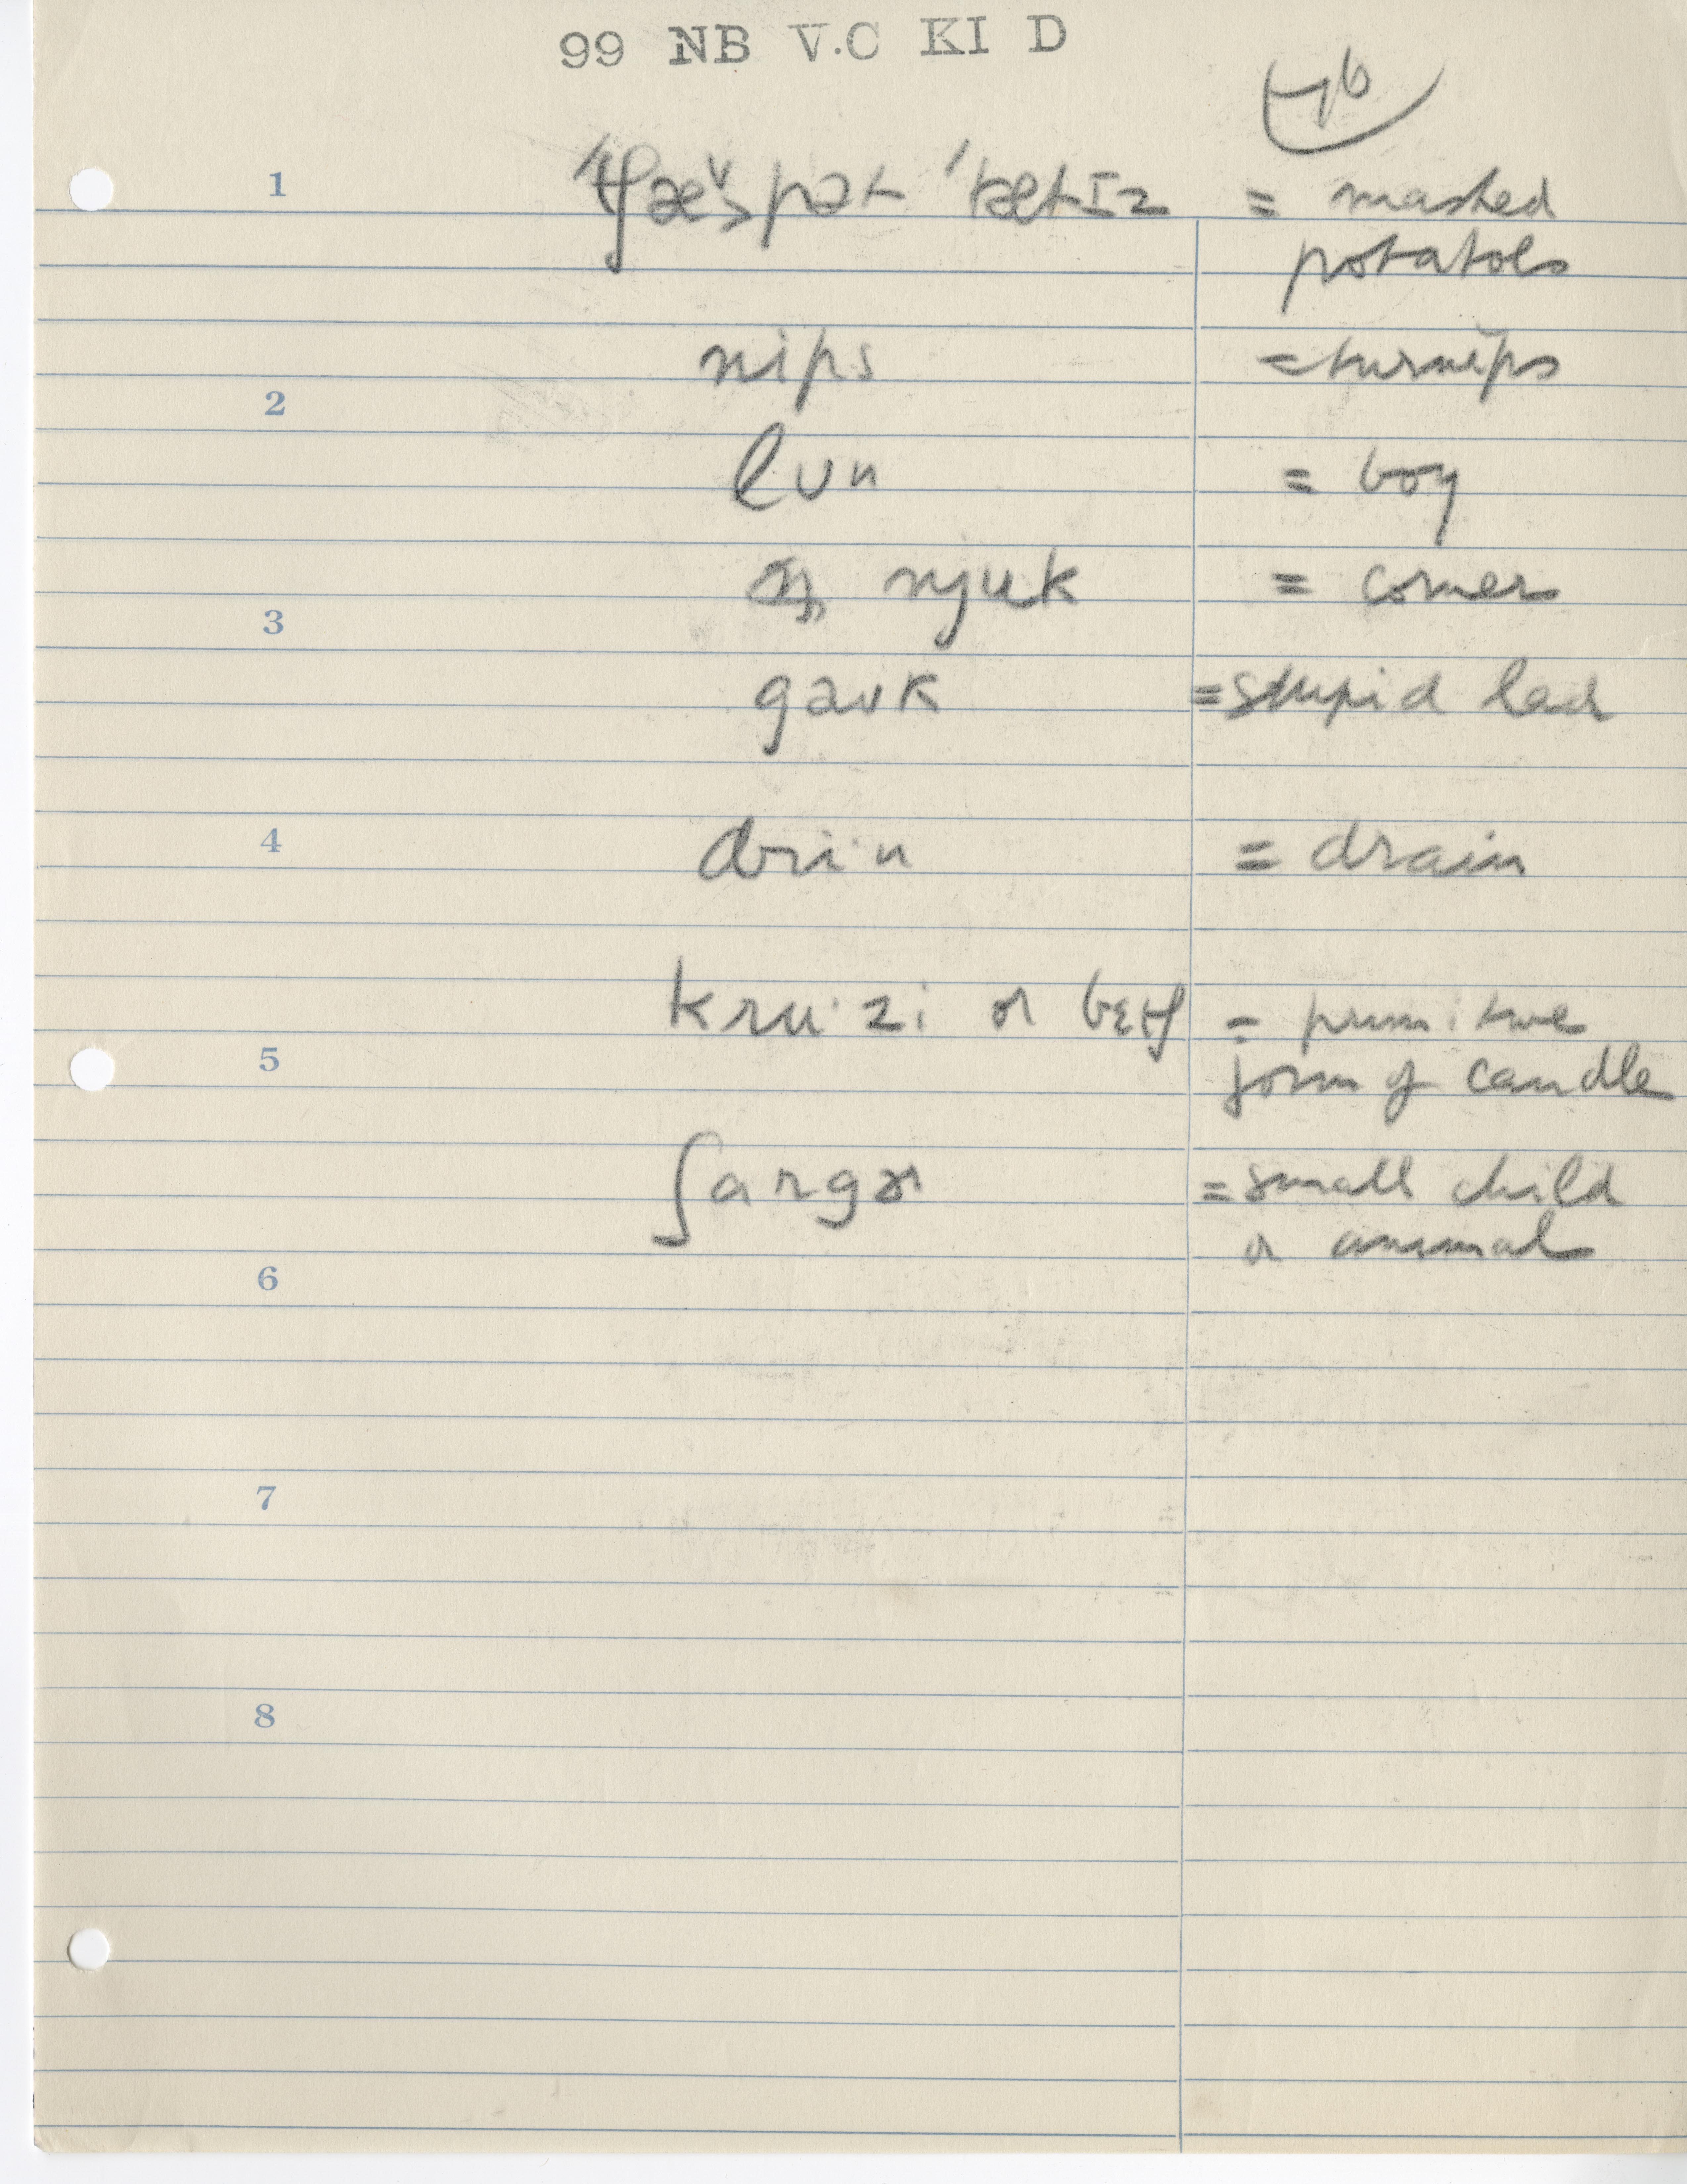 99 NB V.C KI D
1
ˈtʃæˇs pət ˈtætɪz = mashed
potatoes
nips = turnips
2
lʊn = boy
njuk = corner
3
gəʊk = stupid lad
4
dri·n = drain
kru·zi or bɛtʃ = primitive
5
form of candle
ʃargər = small child
or animal
6
7
8